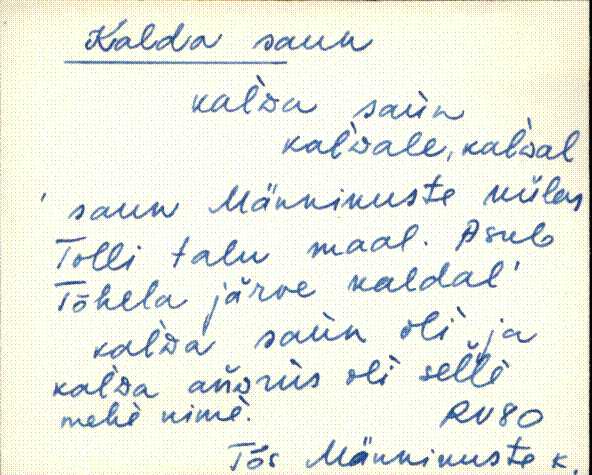 Kalda saun
kal̀da saùn
kal̀dale, kal̀dal
' saun Männikuste külas
Tolli talu maal. Asub
Tõhela järve kaldal'
kal̀da saùn oli ja
kal̀da añdrùs oli selle
mehe nimi.
RV80
Tõs Männikuste k.